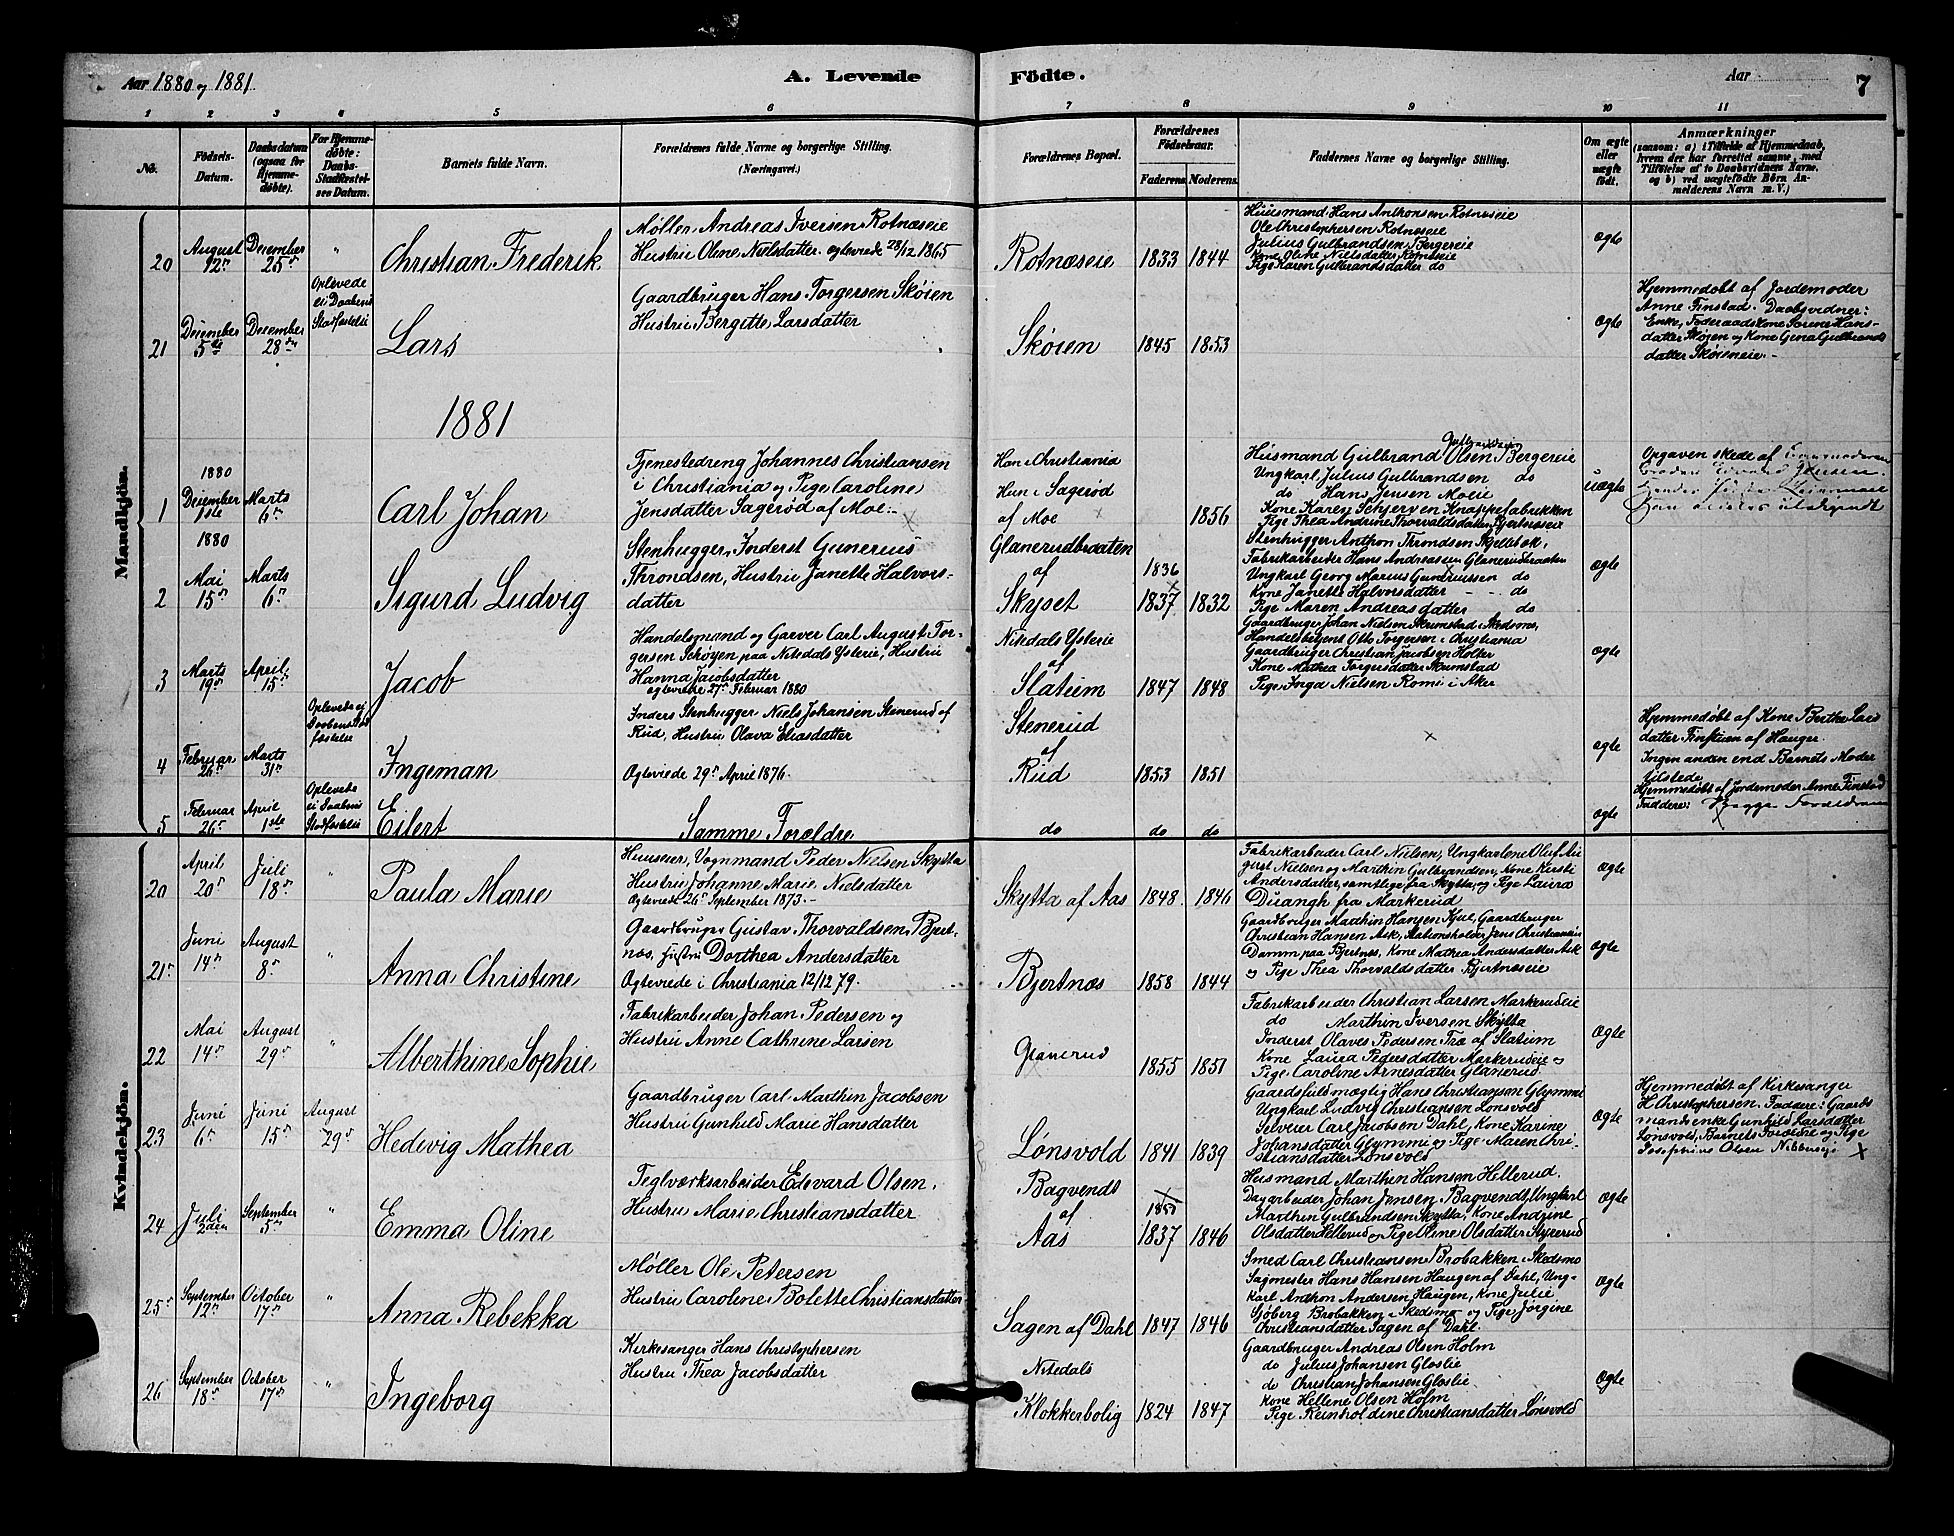 Aar 1880 og 1881.
A. Levende Födte.
Aar
7
1 2 3 4 5 6 7 8 9 10 11
No.
Födsels-Datum.
Daabsdatum (ogsaa for Hjemmedøbte).
For Hjemmedøbte: Daabs-Stadfæstelses Datum.
Barnets fulde Navn.
Forældrenes fulde Navne og borgerlige Stilling. (Næringsvei.)
Forældrenes Bopæl.
Forældrenes Födselsaar.
Faderens. Moderens.
Faddernes Navne og borgerlige Stilling.
Om ægte eller uægte födt.
Anmærkninger
(saasom: a) i Tilfælde af Hjemmedaab, hvem der har forrettet samme, med Tilföielse af to Daabsvidners Navne, og b) ved uægtefödte Börn Anmelderens Navn m. V.)
Mandkjön.
20
August 12te
December 25de
"
Christian Frederik
Møller Andreas Iversen Rotnæseie
Hustru Oline Nielsdatter. ægteviede 28/12 1865
Rotnæseie
1833 1844
Huusmand Hans Anthonsen Rotnæseie
Ole Christophersen Rotnæseie
Julius Gulbrandsen Bergereie
Kone Oline Nielsdatter Rotnæseie
Pige Karen Gulbrandsdatter do
ægte
21
December 5te
December 28de
Oplevede
ei Daabens
Stadfæstelse
Lars
Gaardbruger Hans Torgersen Skøien
Hustru Bergitte Larsdatter
Skøien
1845 1853
ægte
Hjemmedøbt af Jordemoder
Anne Finstad. Daabsvidner:
Enke, Føderaadskone Sørene Hans-
datter Skøien og Kone Gina Gulbrands
datter Skøieneie.-
1881
1
1880
December 1ste
Marts 6te
Carl Johan
Tjenestedreng Johannes Christiansen
i Christiania og Pige Caroline
Jensdatter Sagerød af Moe.-
Han i Christiania
Hun i Sagerød
af Moe
1856
Gulbrandsen
Husmand Gulbrand Olsen Bergereie
Ungkarl Julius Gulbrandsen do
do Hans Jensen Moeie
Kone Karen Schjerven Knappefabrikken
Pige Thea Andrine Thorvaldsdatter Bjertnæseie
uægte
Opgaven skede af
2
1880
Mai 15de
Marts 6te
Sigurd Ludvig
Stenhugger, Inderst Gunerius
Throndsen, Hustru Janette Halvors-
datter
Glanerudbraaten
af
Skyset
1836
1837 1832
Stenhugger Anthon Throndsen Skjellebek,
Fabrikarbeider Hans Andreassen Glanerudbraaten
Ungkarl Georg Marius Guneriussen do
Kone Janette Halvorsdatter - - do
Pige Maren Andreasdatter do
ægte
3
Marts 19de
April 15de
Jacob
Handelsmand og Garver Carl August Tor-
gersen Schøyen paa Nitedals Ysterie, Hustru
Hanna Jacobsdatter
ægteviede 27de Februar 1880
Nitedals Ysterie
af
Slatum
1847 1848
Gaardbruger Johan Nielsen Skrimstad i Skedsmo,
Handelsbetjent Otto Torgersen i Christiania
Gaardbruger Christian Jacobsen Holter
Kone Mathea Torgersdatter Skrimstad
Pige Inga Nielsen Romi i Aker
ægte
4
Februar 26de
Marts 31te
Oplevede ei
Daabens Stad
fæstelse
Ingeman
Inders Stenhugger Niels Johansen Stenerud af
Rud, Hustru Olava Eliasdatter
Ægteviede 29de April 1876.
Stenerud
af
Rud
1853 1851
ægte
Hjemmedøbt af Kone Berthe Lars
datter Finstuen af Hauger.
Ingen anden end Barnets Moder
tilstede
5
Februar 26de
April 1ste
Oplevede
ei Daabens
Stadfæstelse
Eilert
Samme Forældre
do do do
ægte
Hjemmedøbt af Jordemoder Anne Finstad
Faddere: Begge Forældrene
Kvindekjön.
20
April 20de
Juli 18de
"
Paula Marie
Huuseier, Vognmand Peder Nielsen Skytta
Hustru Johanne Marie Nielsdatter
Ægteviede 26de September 1873.-
Skytta af Aas
1848 1846
Fabrikarbeider Carl Nielsen, Ungkarlene Oluf Au
gust Nielsen og Marthin Gulbrandsen, Kone Kirsti
Andersdatter, samtlige fra Skytta, og Pige Laura
Duangh fra Markerud
ægte
21
Juni 14de
August 8de
"
Anna Christine
Gaardbruger Gustav Thorvaldsen Bjert-
næs, Hustru Dorthea Andersdatter
Ægteviede i Christiania 12/12 79.
Bjertnæs
1858 1844
Gaardbruger Marthin Hansen Kjul, Gaardbruger
Christian Hansen Ask, Stationsholder Jens Christiansen
Damm paa Bjertnes, Kone Mathea Andersdatter Ask
og Pige Thea Thorvaldsdatter Bjertnæseie
ægte
22
Mai 14de
August 29de
"
Alberthine Sophie
Fabrikarbeider Johan Pedersen og
Hustru Anne Cathrine Larsen
Glanerud
1855 1851
Fabrikarbeider Christian Larsen Markerudeie
do Marthin Iversen Skytta
Inderst Olaves Pedersen Træ af Slatum
Kone Laura Pedersdatter Markerudeie og
Pige Caroline Arnesdatter Glanerud
ægte
23
Juni 6te
Juni 15de
August 29de
Hedevig Mathea
Gaardbruger Carl Marthin Jacobsen
Hustru Gunhild Marie Hansdatter
Lønsvold
1841 1839
Gaardsfuldmægtig Hans Christiansen Glymmi
Ungkarl Ludvig Christiansen Lønsvold
Selveier Carl Jacobsen Dahl, Kone Karine
Johansdatter Glymmi og Pige Maren Chri-
stiansdatter Lønsvold
ægte
Hjemmedøbt af Kirkesanger
H Christophersen. Faddere: Gaard-
mandsenke Gunhild Larsdatter
Lønsvold, Barnets Forældre og Pige
Josephine Olsen
24
Juli 2den
September 5te
"
Emma Oline
Teglværksarbeider Edevard Olsen.
Hustru Marie Christiansdatter
Bagvendt
af
Aas
1837 1846
Husmand Marthin Hansen Hellerud.
Dagarbeider Johan Jensen Bagvendt, Ungkarl
Marthin Gulbrandsen Skytta, Kone Andrine
Olsdatter Hellerud og Pige Oline Olsdatter Styrerud
ægte
25
September 12te
October 17de
"
Anna Rebekka
Møller Ole Petersen
Hustru Caroline Bolette Christiansdatter
Sagen af Dahl
1847 1846
Smed Carl Christiansen Brobakken i Skedsmo
Sagmester Hans Hansen Haugen af Dahl, Ung-
karl Anthon Andersen Haugen, Kone Julie
Sjøberg Brobakken i Skedsmo og Pige Jørgine
Christiansdatter Sagen af Dahl.
ægte
26
September 18de
October 17de
"
Ingeborg
Kirkesanger Hans Christophersen
Hustru Thea Jacobsdatter
Nitedals
Klokkerbolig
1824 1847
Gaardbruger Andreas Olsen Holm
do Julius Johansen Gloslie
do Christian Johansen Gloslie
Kone Hellene Olsen Holm
Pige Reinholdine Christiansdatter Lönsvold
ægte